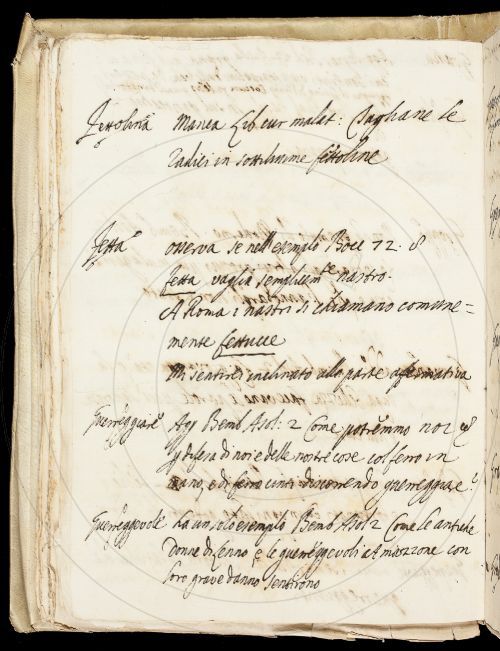 Fettolina Manca Lib cur malat: Tagliane le
radici in sottilissime fettoline
Fetta osserva se nell'esempio Bocc 72. 8
fetta vaglia semplicem.te nastro.
A Roma i nastri si chiamano comune=
mente fettucce
Mi sentirei inclinato alla parte affermativa
Guerreggiare Ag Bemb Asol: 2 Come potremmo noi
difesa di noi e delle nostre cose col ferro in
mano, e di ferro cinti discorrendo guerreggiare
Guerreggevole ha un solo esempio Bemb Asol. 2 Come le antiche
Donne di Lenno e le guerreggevoli Amazzone con
loro grave danno sentirono